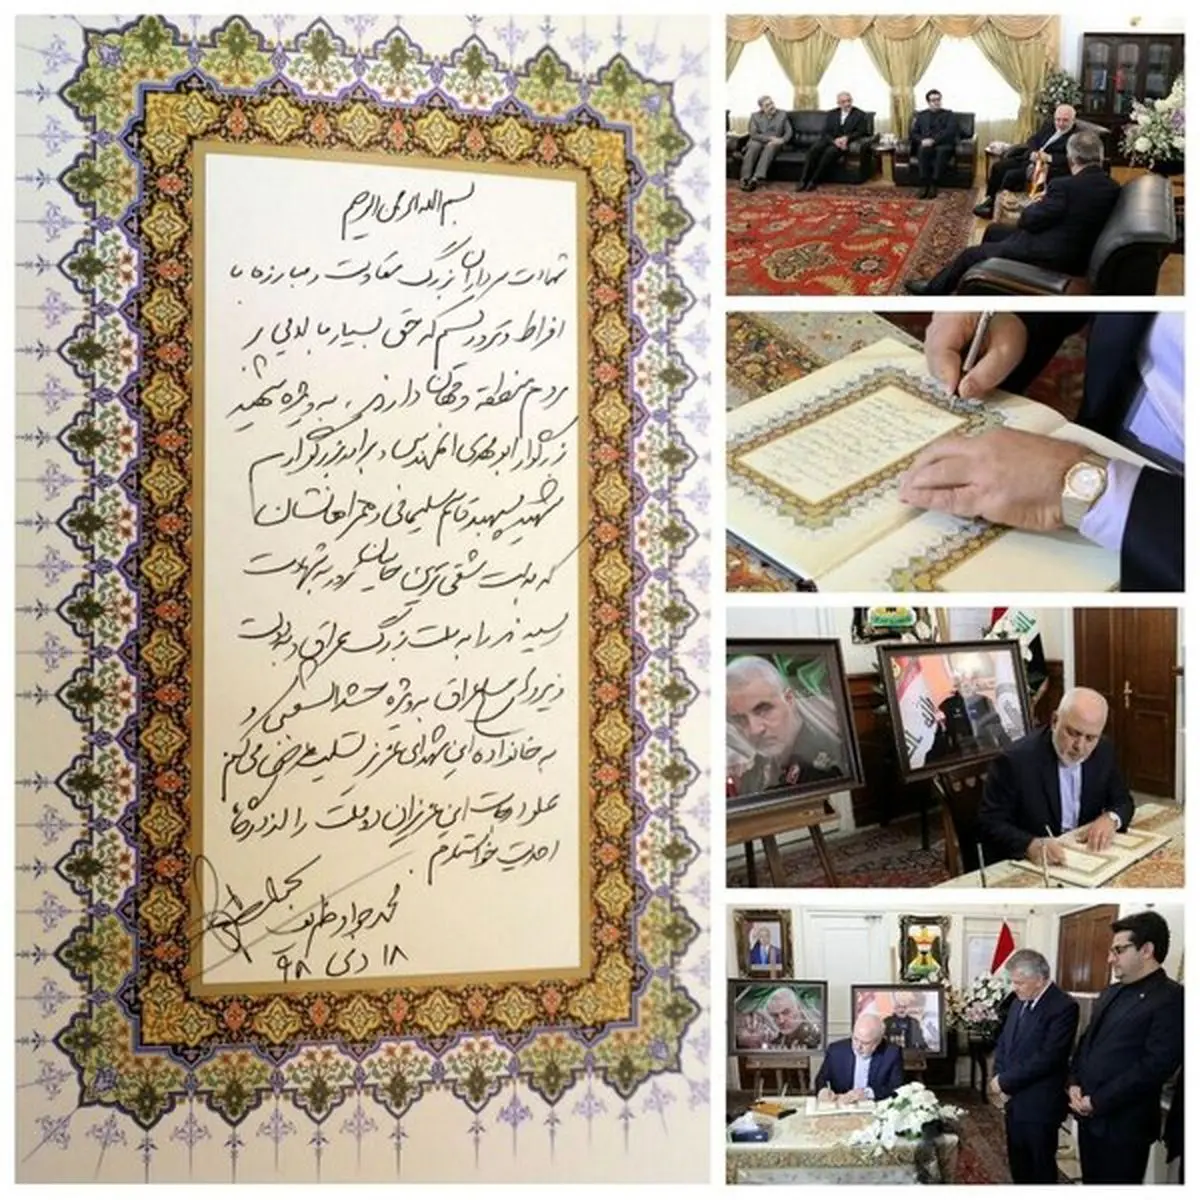 بسم الله الرحمن الرحیم
شهادت سرداران بزرگ مقاومت و مبارزه با
افراط و تروریسم که حق بسیار بالایی بر
مردم منطقه و جهان دارند، به ویژه شهید
بزرگوار ابومهدی المهندس و برادر بزرگوارم
شهید سپهبد قاسم سلیمانی و همراهانشان
که بدست شقی ترین جانیان روز به شهادت
رسیدند را به ملت بزرگ عراق و به دولت
عراق به ویژه حشد الشعبی و
به خانواده این شهدای عزیز تسلیت عرض می کنم
علو درجات این عزیزان دو ملت را از درگاه
احدیت خواستارم.
محمد جواد ظریف
۱۸ دی ۹۸